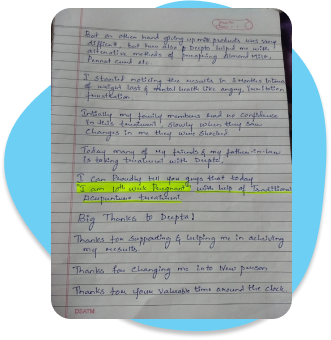 But on other hand giving up milk products was very
difficult, but here also Deepta helped me with
alternative methods of preparing Almond Milk,
Peanut curd etc.
I started noticing the results in 3 months interms
of weight loss & mental health like anger, irritation
frustration
Initially my family members had no confidence
in this treatment, slowly when they saw
changes in me they were shocked
Today many of my friends & my father-in-law
is taking treatment with Deepta,
I can Proudly tell you guys that today
"I am 10th week Pregnant" with help of Traditional
Acupuncture treatment.
Big Thanks to Deepta!
Thanks for supporting & helping me in achieving
my results
Thanks for changing me into New person
Thanks for your valuable time around the clock
DSATM